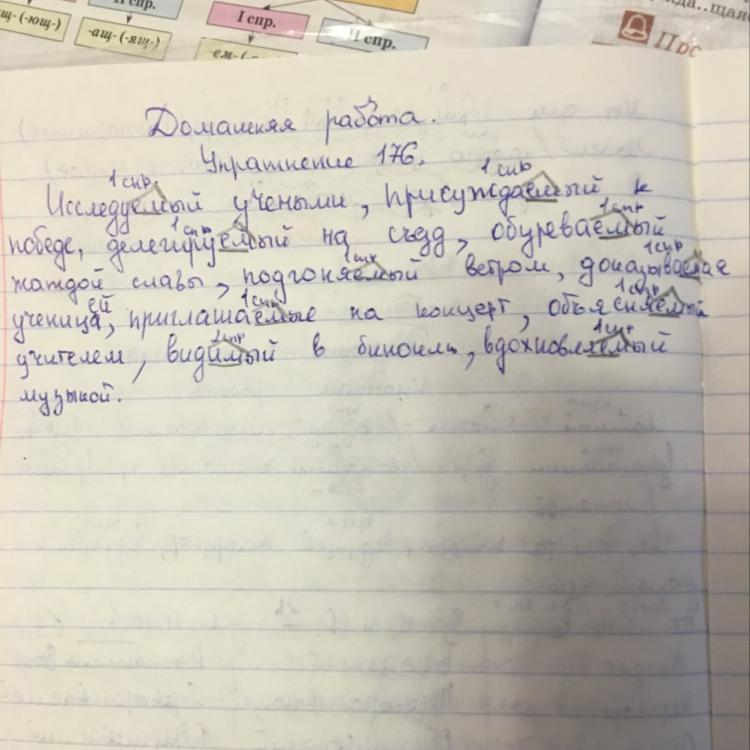 II спр.
I спр.
II спр.
-ащ- (-ящ-)
Домашняя работа.
Упражнение 176.
1 спр. 1 спр
Исследуемый учеными, присуждаемый к
1 спр 1 спр
победе, делегируемый на съезд, обуреваемый
1 спр 1 спр
жаждой славы, подгоняемый ветром, доказываемая
ей 1 спр 1 спр
ученица, приглашаемые на концерт, объясняемый
2 спр 1 спр
учителем, видимый в бинокль, вдохновляемый
музыкой.